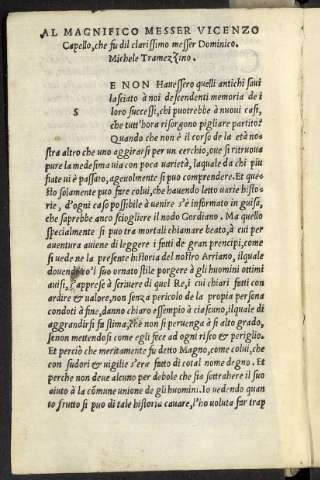 AL MAGNIFICO MESSER VICENZO
Capello, che fu dil clarissimo messer Dominico.
Michele Tramezzino.
E NON Hauessero quelli antichi saui
lasciato à noi descendenti memoria de i
S
loro successi, chi puotrebbe à nuoui casi,
che tutt'hora risorgono pigliare partito?
Quando che non è il corso de la età no=
stra altro che uno aggirarsi per un cerchio, oue si ritruoua
pure la medesima uia con poca varietà, laquale da chi piu
fiate ui è passato, ageuolmente si puo comprendere. Et que=
sto solamente puo fare colui, che hauendo letto varie histo=
rie, d'ogni caso possibile à uenire s'è informato in guisa,
che saprebbe anco sciogliere il nodo Gordiano. Ma quello
specialmente si puo tra mortali chiamare beato, à cui per
auentura auiene di leggere i fatti de gran prencipi, come
si uede ne la presente historia del nostro Arriano, ilquale
douendo co'l suo ornato stile porgere à gli huomini ottimi
auisi, s'apprese à scriuere di quel Re, i cui chiari fatti con
ardire & ualore, non senza pericolo de la propia persona
condoti à fine, danno chiaro essempio à ciascuno, ilquale di
aggrandirsi fa stima, che non si peruenga à si alto grado,
se non mettendosi come egli fece ad ogni risco & periglio.
Et perciò che meritamente fu detto Magno, come colui, che
con sudori & uigilie s'era fatto di cotal nome degno. Et
perche non deue alcuno per debole che sia sottrahere il suo
aiuto à la cõmune unione de gli huomini. Io uedendo quan
to frutto si puo di tale historia cauare, l'ho voluta far trap